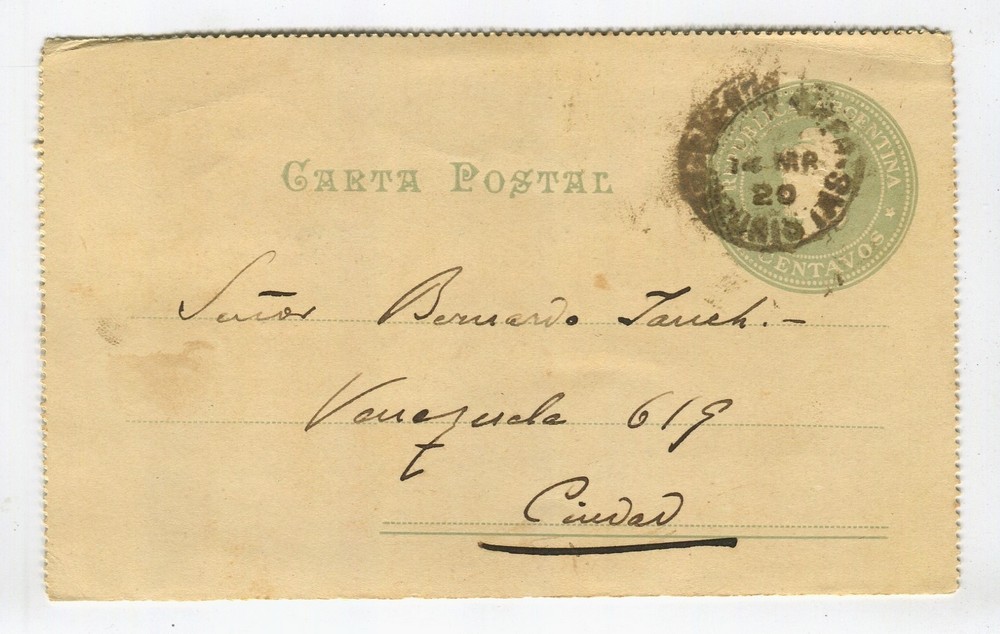 CARTA POSTAL
REPUBLICA ARGENTINA
CENTAVOS
14 MR
20
Señor Bernardo
Venezuela 619
Ciudad